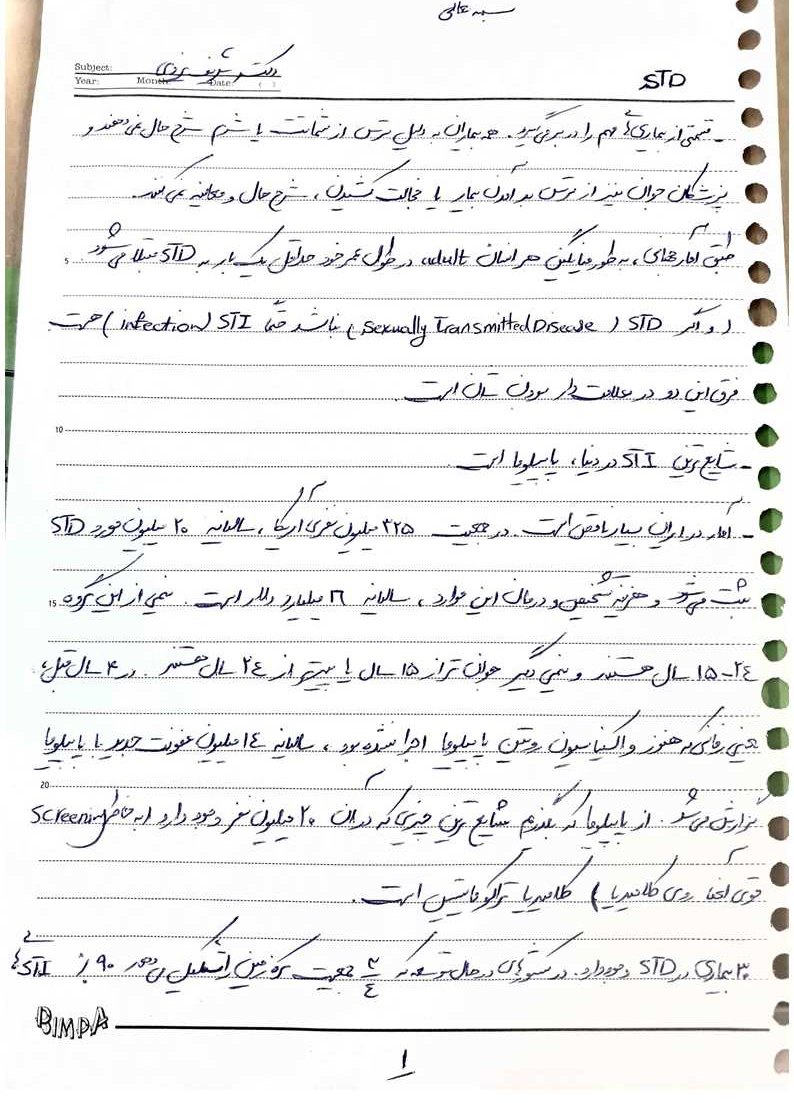 بسمه تعالی
Subject: دکتر شریف یزدی
Year: Month: Date: ( )
STD
- قسمتی از بیماری‌های مهم را در بر می‌گیرد. هم بیماران به دلیل ترس از شماتت یا شرم شرح حال نمی‌دهند و
پزشکان جوان نیز از ترس بد آمدن بیمار یا خجالت کشیدن، شرح حال و معاینه نمی‌کنند.
طبق آمار جهانی، به طور میانگین هر انسان adult، در طول عمر خود حداقل یک بار به STD مبتلا می‌شود 5
(و اگر STD (Sexually Transmitted Disease) نباشد حتماً STI (infection) هست.
فرق این دو در علامت دار بودن شان است.
10
- شایع ترین STI در دنیا، پاپیلوما است
- آمار در ایران بسیار ناقص است. در جمعیت ۳۲۵ میلیون نفری آمریکا، سالیانه ۲۰ میلیون مورد STD
ثبت می‌شود و هزینه تشخیص و درمان این موارد، سالیانه ۱۶ میلیارد دلار است. نیمی از این گروه 15
۱۵-۲۴ سال هستند و نیمی دیگر جوان تر از ۱۵ سال یا بیشتر از ۲۴ سال هستند. در ۴ سال قبل،
یعنی زمانی که هنوز واکسیناسیون روتین پاپیلوما اجرا نشده بود، سالیانه ۱۴ میلیون عفونت جدید با پاپیلوما
20
گزارش می‌شد. از پاپیلوما که بگذریم شایع ترین چیزی که در آن ۲۰ میلیون نفر وجود دارد (به خاطر Screening
قوی آنها روی کلامیدیا) کلامیدیا تراکوماتیس است.
۳۰ بیماری در STD وجود دارد. در کشورهای در حال توسعه که ۳/۴ جمعیت کره زمین را تشکیل می‌دهد ۹۰٪ STI های
BIMDA
۱